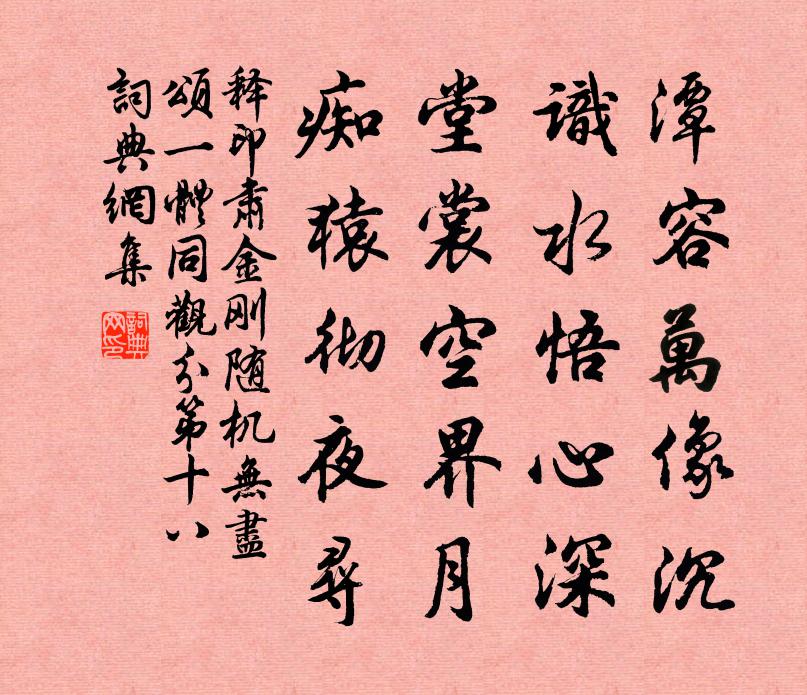 潭容萬像沉
識水悟心深
堂裳空界月
痴猿彻夜尋
释印肅金刚随机無盡
頌一體同觀分第十八
詞典網集
詞典网印